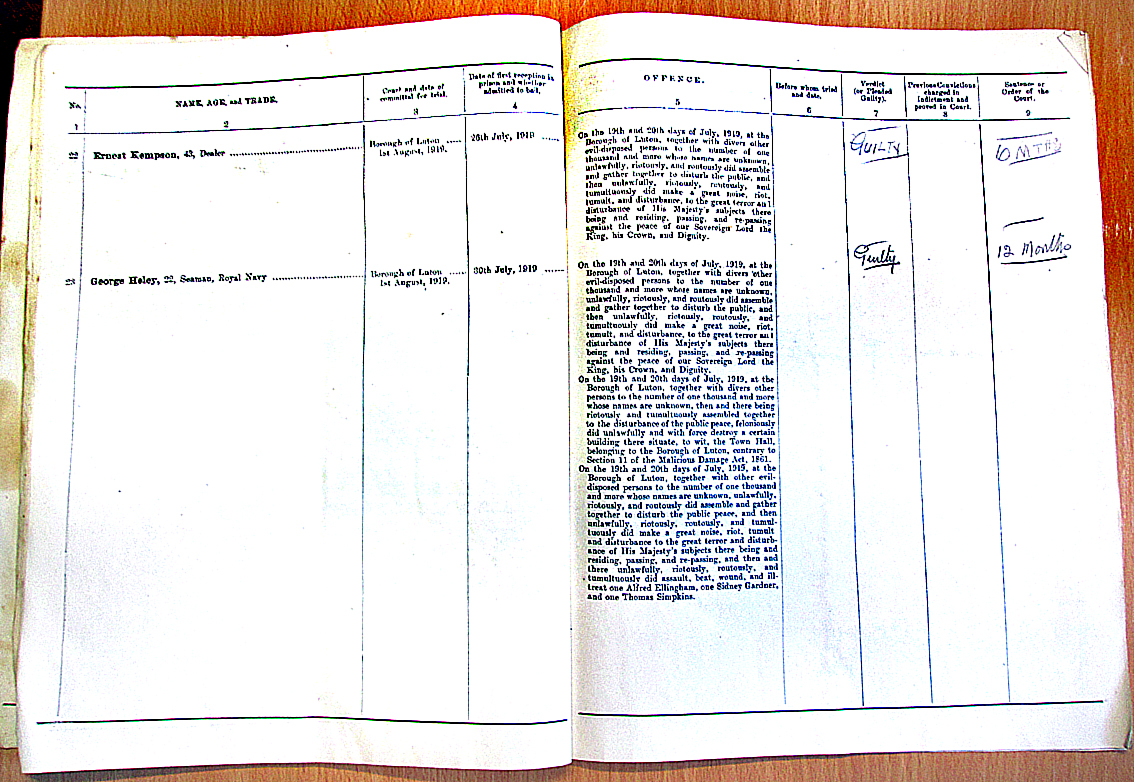 No.
NAME, AGE, and TRADE.
Court and date of
committal for trial.
Date of first reception in
prison and whether
admitted to bail.
OFFENCE.
Before whom tried
and date.
Verdict
(or Pleaded
Guilty).
Previous Convictions
charged in
Indictment and
proved in Court.
Sentence or
Order of the
Court.
1
2
3
4
5
6
7
8
9
22
Ernest Kempson, 43, Dealer
Borough of Luton
1st August, 1919.
26th July, 1919
On the 19th and 20th days of July, 1919, at the
Borough of Luton, together with divers other
evil-disposed persons to the number of one
thousand and more whose names are unknown,
unlawfully, riotously, and routously did assemble
and gather together to disturb the public, and
then unlawfully, riotously, routously, and
tumultuously did make a great noise, riot,
tumult, and disturbance, to the great terror and
disturbance of His Majesty's subjects there
being and residing, passing, and re-passing
against the peace of our Sovereign Lord the
King, his Crown, and Dignity.
GUILTY
6 MTHS
23
George Heley, 22, Seaman, Royal Navy
Borough of Luton
1st August, 1919.
30th July, 1919
On the 19th and 20th days of July, 1919, at the
Borough of Luton, together with divers other
evil-disposed persons to the number of one
thousand and more whose names are unknown,
unlawfully, riotously, and routously did assemble
and gather together to disturb the public, and
then unlawfully, riotously, routously, and
tumultuously did make a great noise, riot,
tumult, and disturbance, to the great terror and
disturbance of His Majesty's subjects there
being and residing, passing, and re-passing
against the peace of our Sovereign Lord the
King, his Crown, and Dignity.
On the 19th and 20th days of July, 1919, at the
Borough of Luton, together with divers other
persons to the number of one thousand and more
whose names are unknown, then and there being
riotously and tumultuously assembled together
to the disturbance of the public peace, feloniously
did unlawfully and with force destroy a certain
building there situate, to wit, the Town Hall,
belonging to the Borough of Luton, contrary to
Section 11 of the Malicious Damage Act, 1861.
On the 19th and 20th days of July, 1919, at the
Borough of Luton, together with other evil-
disposed persons to the number of one thousand
and more whose names are unknown, unlawfully,
riotously, and routously did assemble and gather
together to disturb the public peace, and then
unlawfully, riotously, routously, and tumul-
tuously did make a great noise, riot, tumult
and disturbance to the great terror and disturb-
ance of His Majesty's subjects there being and
residing, passing, and re-passing, and then and
there unlawfully, riotously, routously, and
tumultuously did assault, beat, wound, and ill-
treat one Alfred Ellingham, one Sidney Gardner,
and one Thomas Simpkins.
Guilty
12 Months